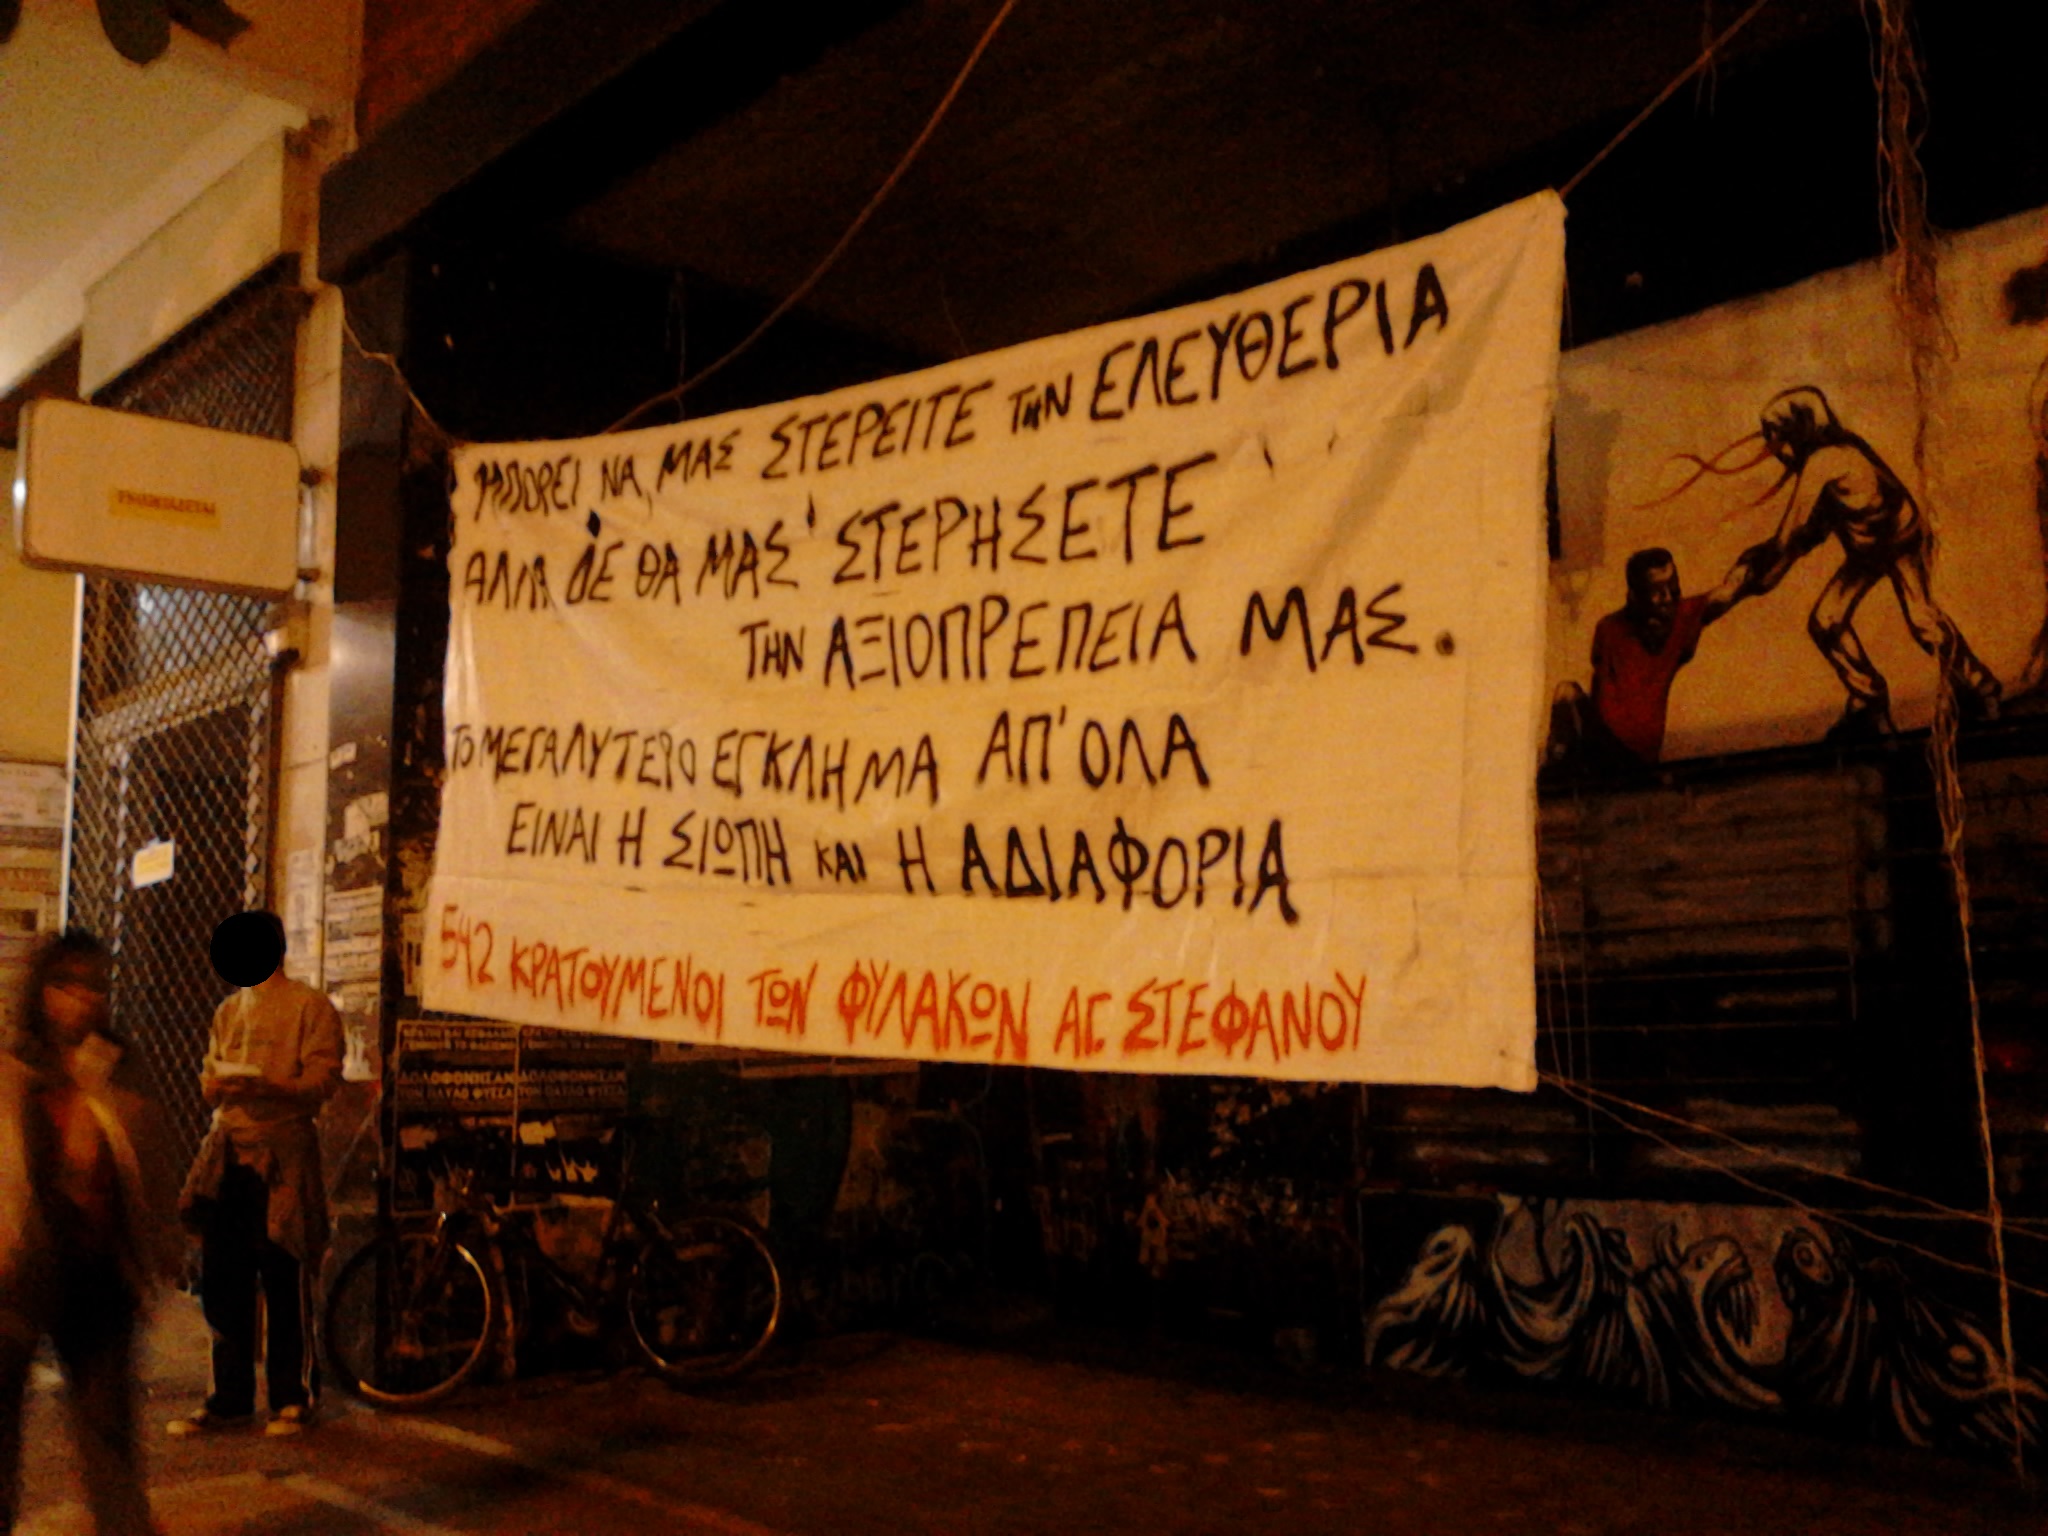 ΜΠΟΡΕΙ ΝΑ ΜΑΣ ΣΤΕΡΕΙΤΕ ΤΗΝ ΕΛΕΥΘΕΡΙΑ
ΑΛΛΑ ΔΕ ΘΑ ΜΑΣ ΣΤΕΡΗΣΕΤΕ
ΤΗΝ ΑΞΙΟΠΡΕΠΕΙΑ ΜΑΣ.
ΤΟ ΜΕΓΑΛΥΤΕΡΟ ΕΓΚΛΗΜΑ ΑΠ'ΟΛΑ
ΕΙΝΑΙ Η ΣΙΩΠΗ ΚΑΙ Η ΑΔΙΑΦΟΡΙΑ
542 ΚΡΑΤΟΥΜΕΝΟΙ ΤΩΝ ΦΥΛΑΚΩΝ ΑΓ. ΣΤΕΦΑΝΟΥ
ΕΝΟΙΚΙΑΖΕΤΑΙ
ΔΟΛΟΦΟΝΗΣΑΝ ΔΟΛΟΦΟΝΗΣΑΝ
ΤΟΝ ΠΑΥΛΟ ΦΥΣΣΑ ΤΟΝ ΠΑΥΛΟ ΦΥΣΣΑ